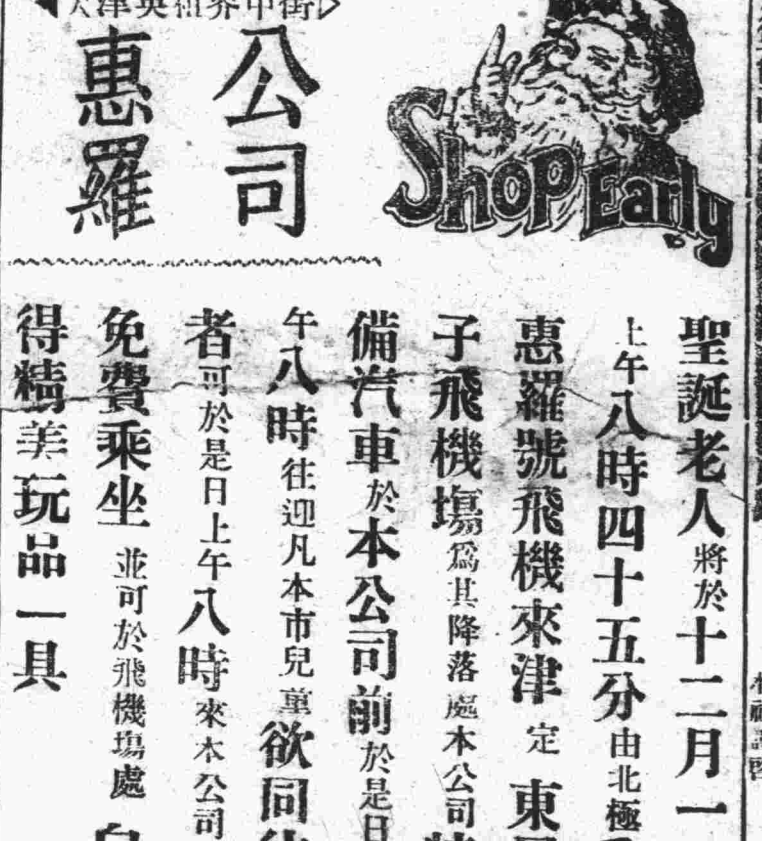 天津英租界中街
惠羅公司
Shop Early
聖誕老人將於十二月一
上午八時四十五分由北極
惠羅號飛機來津定東
子飛機塲爲其降落處本公司
備汽車於本公司前於是日
午八時往迎凡本市兒童欲同
者可於是日上午八時來本公司
免費乘坐並可於飛機塲處
得精美玩品一具